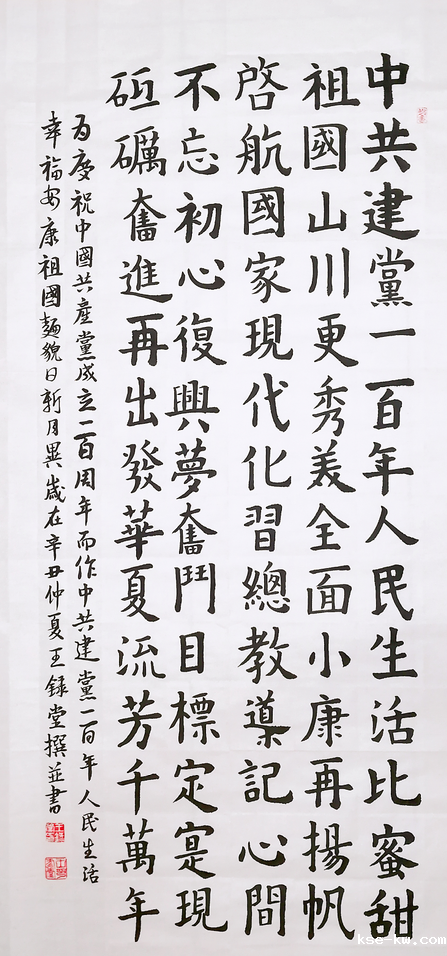 中共建黨一百年人民生活比蜜甜
祖國山川更秀美全面小康再揚帆
啓航國家現代化習總教導記心間
不忘初心復興夢奮鬥目標定寔現
砥礪奮進再出發華夏流芳千萬年
为慶祝中國共產黨成立一百周年而作中共建黨一百年人民生活
幸福安康祖國麵貌日新月異歲在辛丑仲夏王録堂撰並書
kse-kw.com